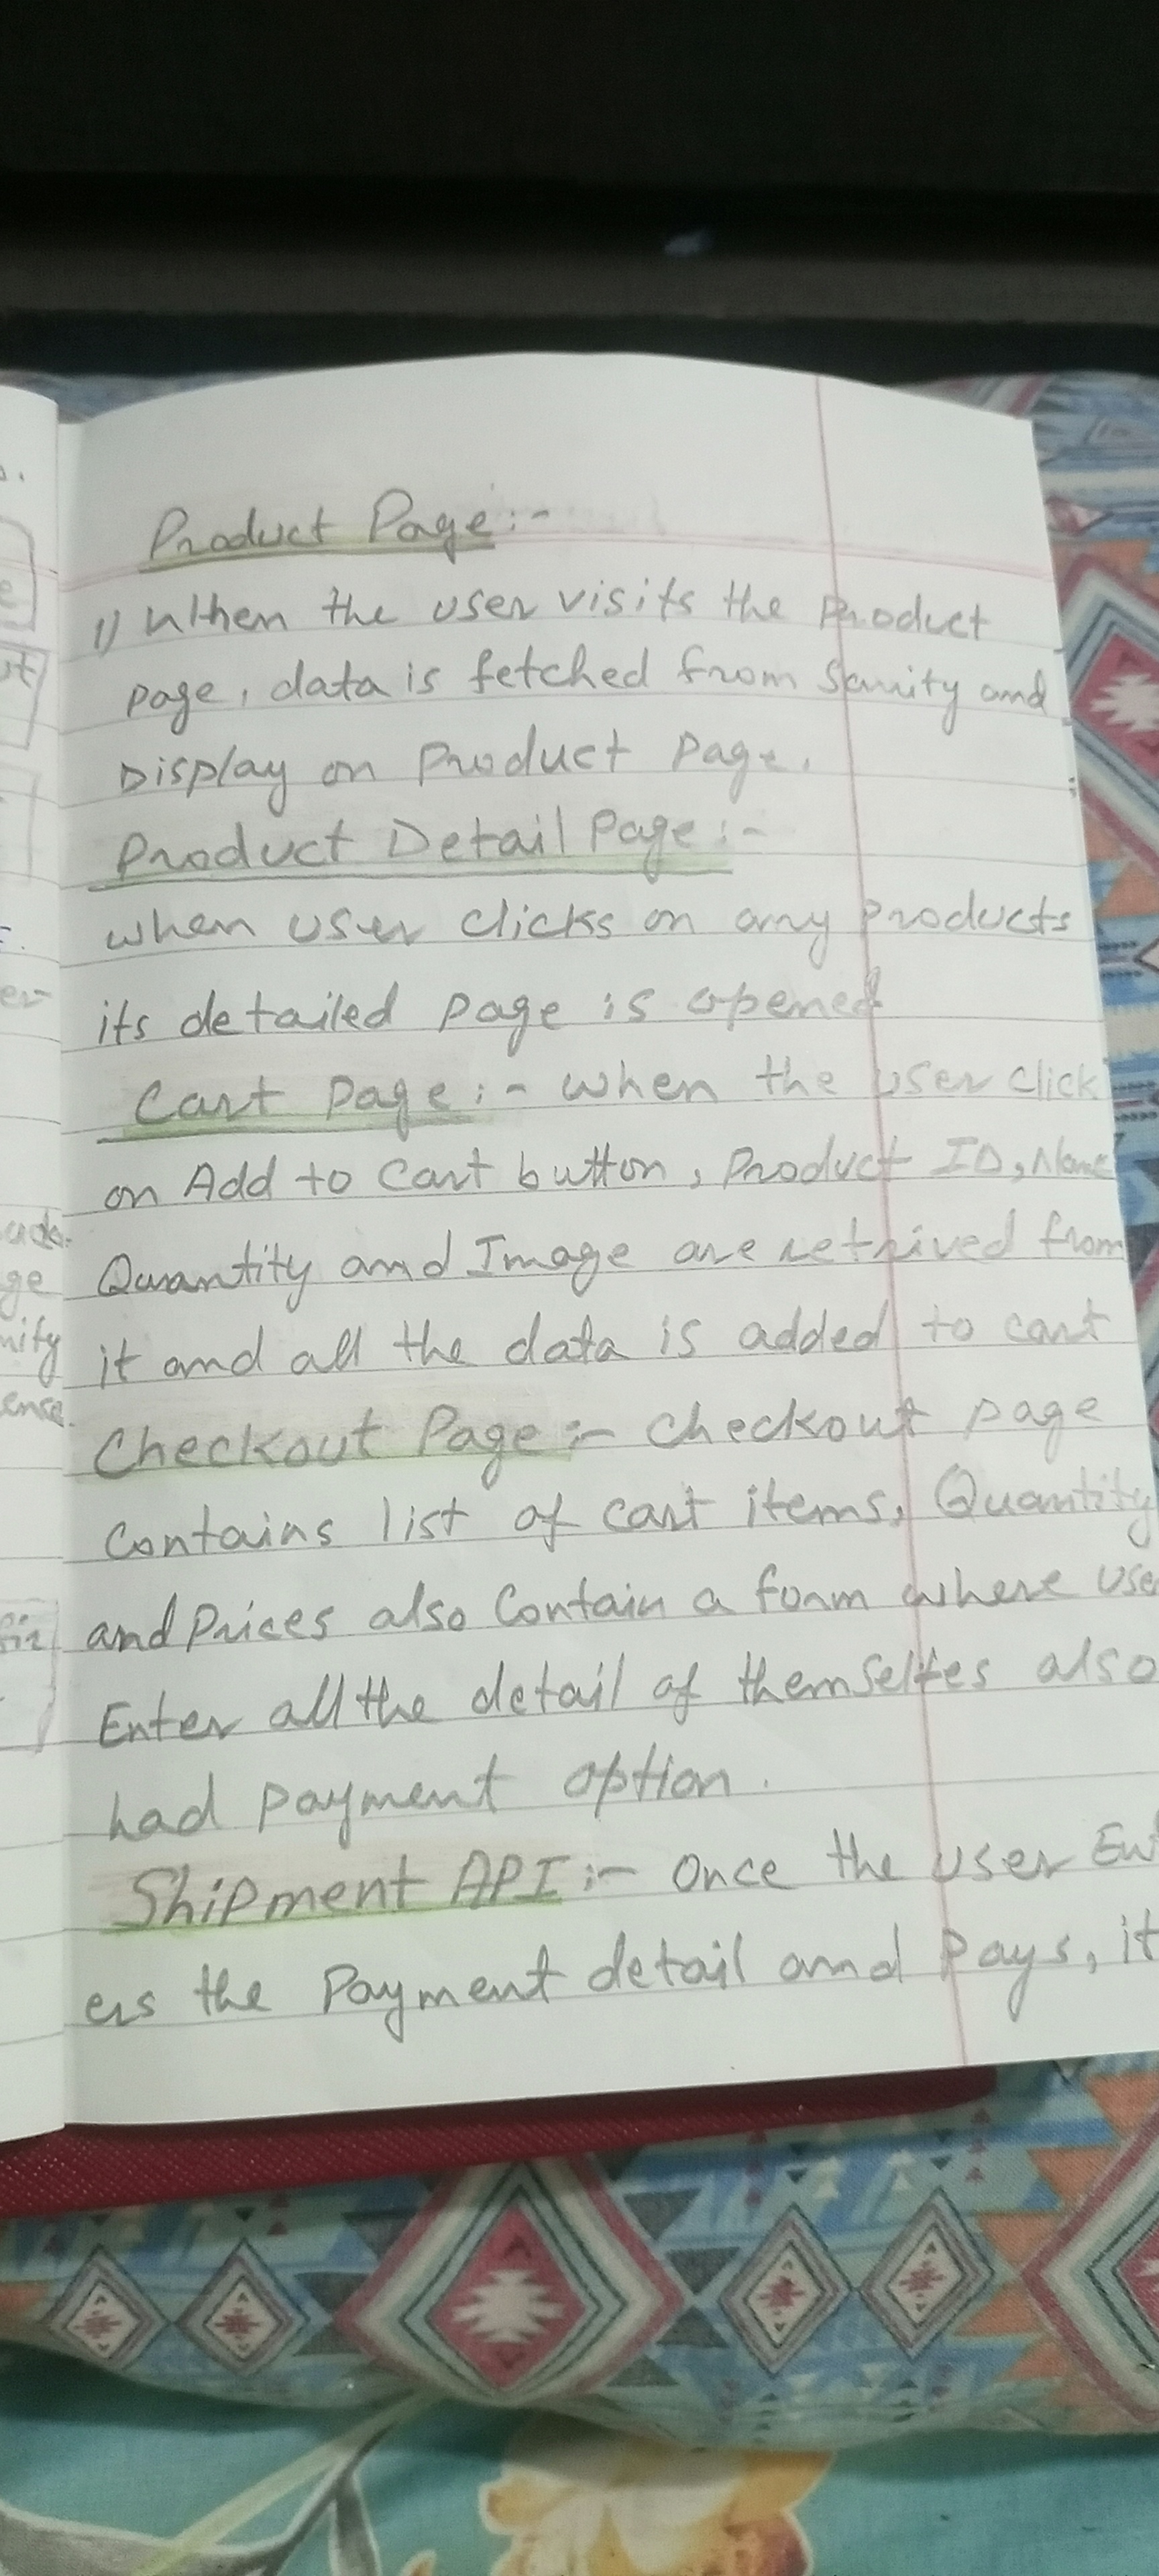 Product Page:-
1) When the user visits the Product
page, data is fetched from Sanity and
Display on Product page.
Product Detail Page:-
when user clicks on any products
its detailed page is opened
Cart Page:- when the user click
on Add to Cart button, Product ID, Name
Quantity and Image are retrived from
it and all the data is added to cart
Checkout Page:- Checkout page
Contains list of cart items, Quantity
and Prices also Contain a form where use
Enter all the detail of themselfes also
had payment option.
Shipment API:- Once the user Ent
ers the Payment detail and Pays, it